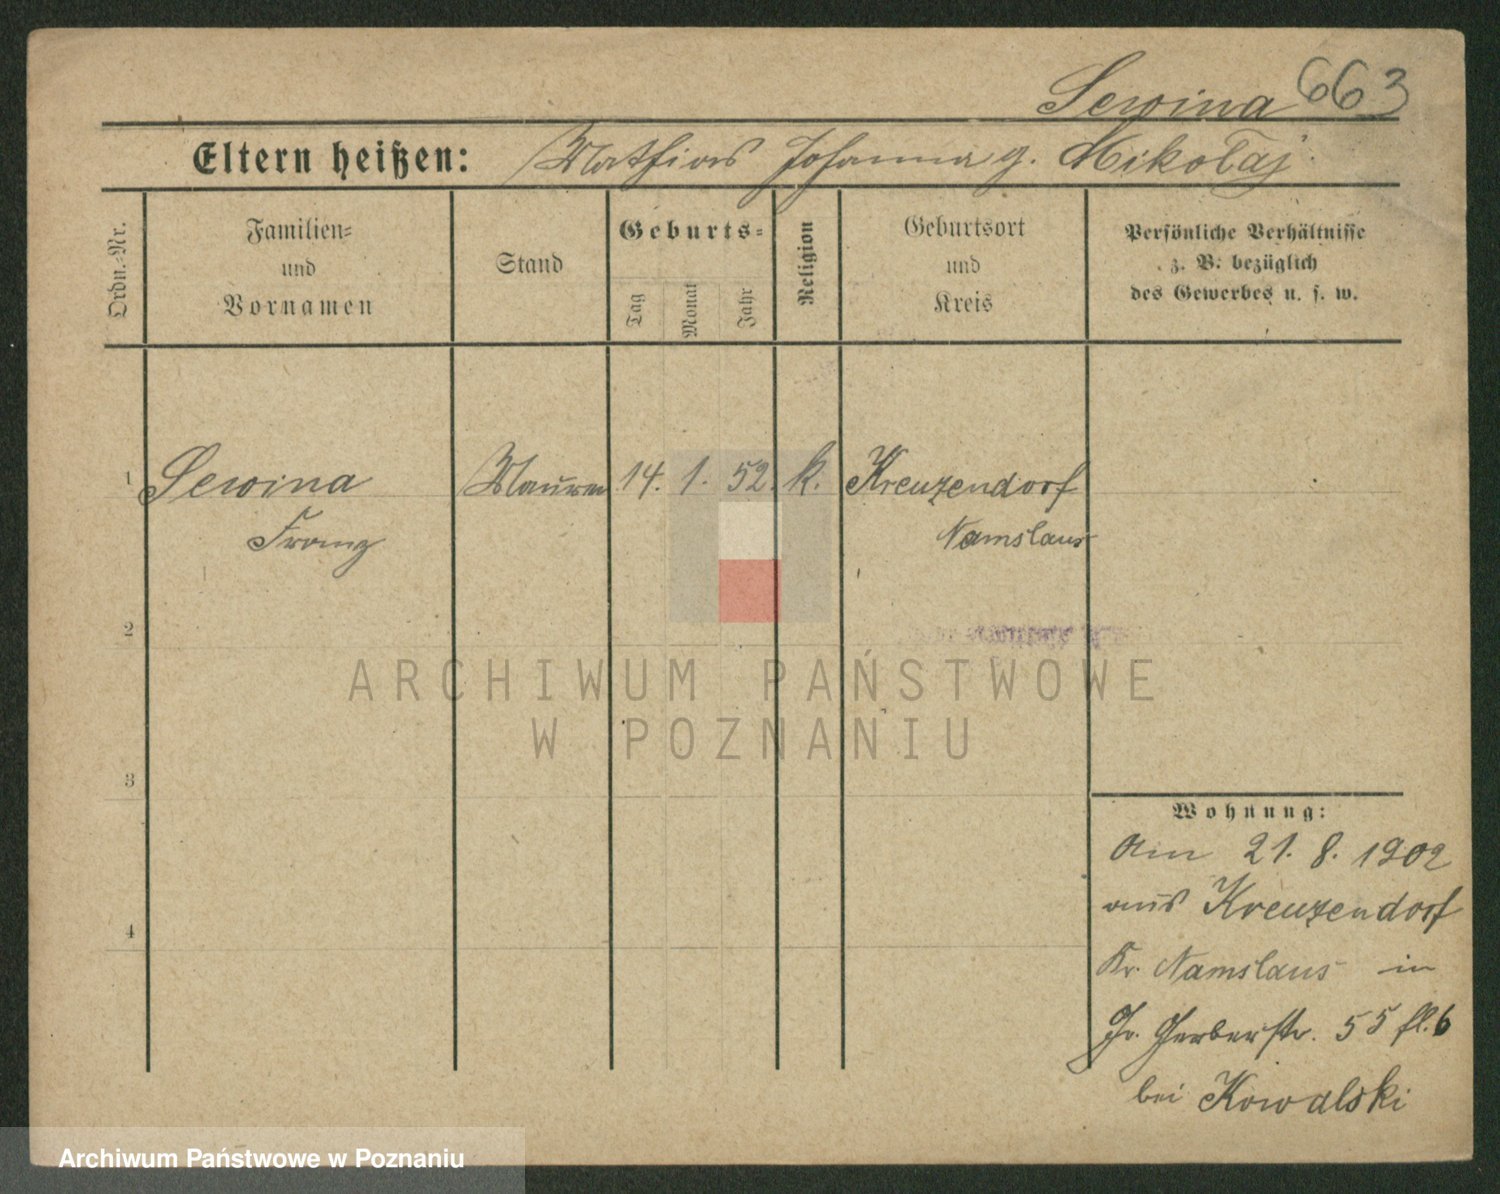 Sewina 663
Eltern heißen: Mathias Johanna g. Mikołaj
Ordn.-Nr.
Familien-
und
Vornamen
Stand
Geburts-
Tag
Monat
Jahr
Religion
Geburtsort
und
Kreis
Persönliche Verhältnisse
z. B. bezüglich
des Gewerbes u. s. w.
1 Sewina Maurer 14. 1. 52. k. Kreuzendorf
Franz Namslau
2
ARCHIWUM PAŃSTWOWE
W POZNANIU
3
Wohnung:
Am 21. 8. 1902
aus Kreuzendorf
4
Kr. Namslau in
Gr. Gerberstr. 55 fl. 6
bei Kowalski
Archiwum Państwowe w Poznaniu